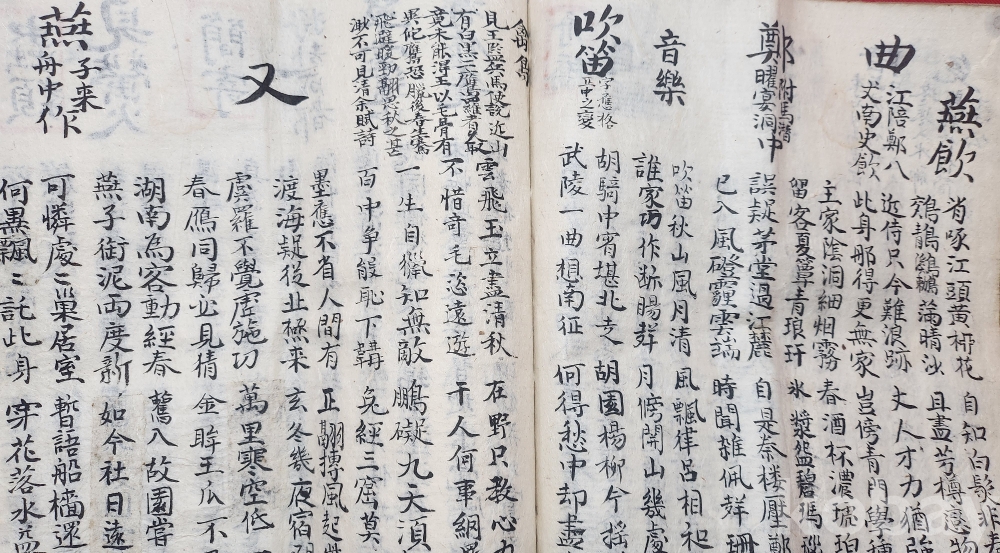 燕飲
曲
江陪鄭八
丈南史飲
啄江頭黃柳花 自知白髮非
鵁鶄鸂鶒滿晴沙 且盡芳樽戀物
近侍只今難浪跡 丈人才力猶強
此身那得更無家 豈傍青門學種
鄭
附馬潛
曜宴洞中
主家陰洞細烟霧 春酒杯濃琥珀
留客夏簟青琅玕 氷漿盌碧瑪瑙
誤疑茅堂過江麓 自是秦楼壓鄭
已入風磴霾雲端 時聞雜佩聲珊
音樂
吹笛
吹笛秋山風月清 風飄律呂相和
誰家巧作断腸聲 月傍開山幾處
胡騎中宵堪北走 胡園楊柳今揺
武陵一曲想南征 何得愁中却盡
見王監兵馬使說近山
有白黑二鷹羅者久取
竟未能得王以毛骨有
異他鷹恐臘後春生騫
飛避暖勁翮思秋之甚
眇不可見清余賦詩
雲飛玉立盡清秋 在野只教心力
不惜奇毛恣遠遊 干人何事網羅
一生自獵知無敵 鵬礙九天須
百中争能恥下鞲 兔經三窟莫
又
墨鷹不省人間有 正翮摶風起
渡海疑從北極來 玄冬幾夜宿
虞羅不覺虛施功 萬里寒空低
春鴈同歸必見猜 金眸玉爪不
燕子来
舟中作
湖南為客動經春 舊入故園嘗
燕子銜泥両度新 如今社日遠
可憐處〻巢居室 暫語船檣還
何異飄〻託此身 穿花落水